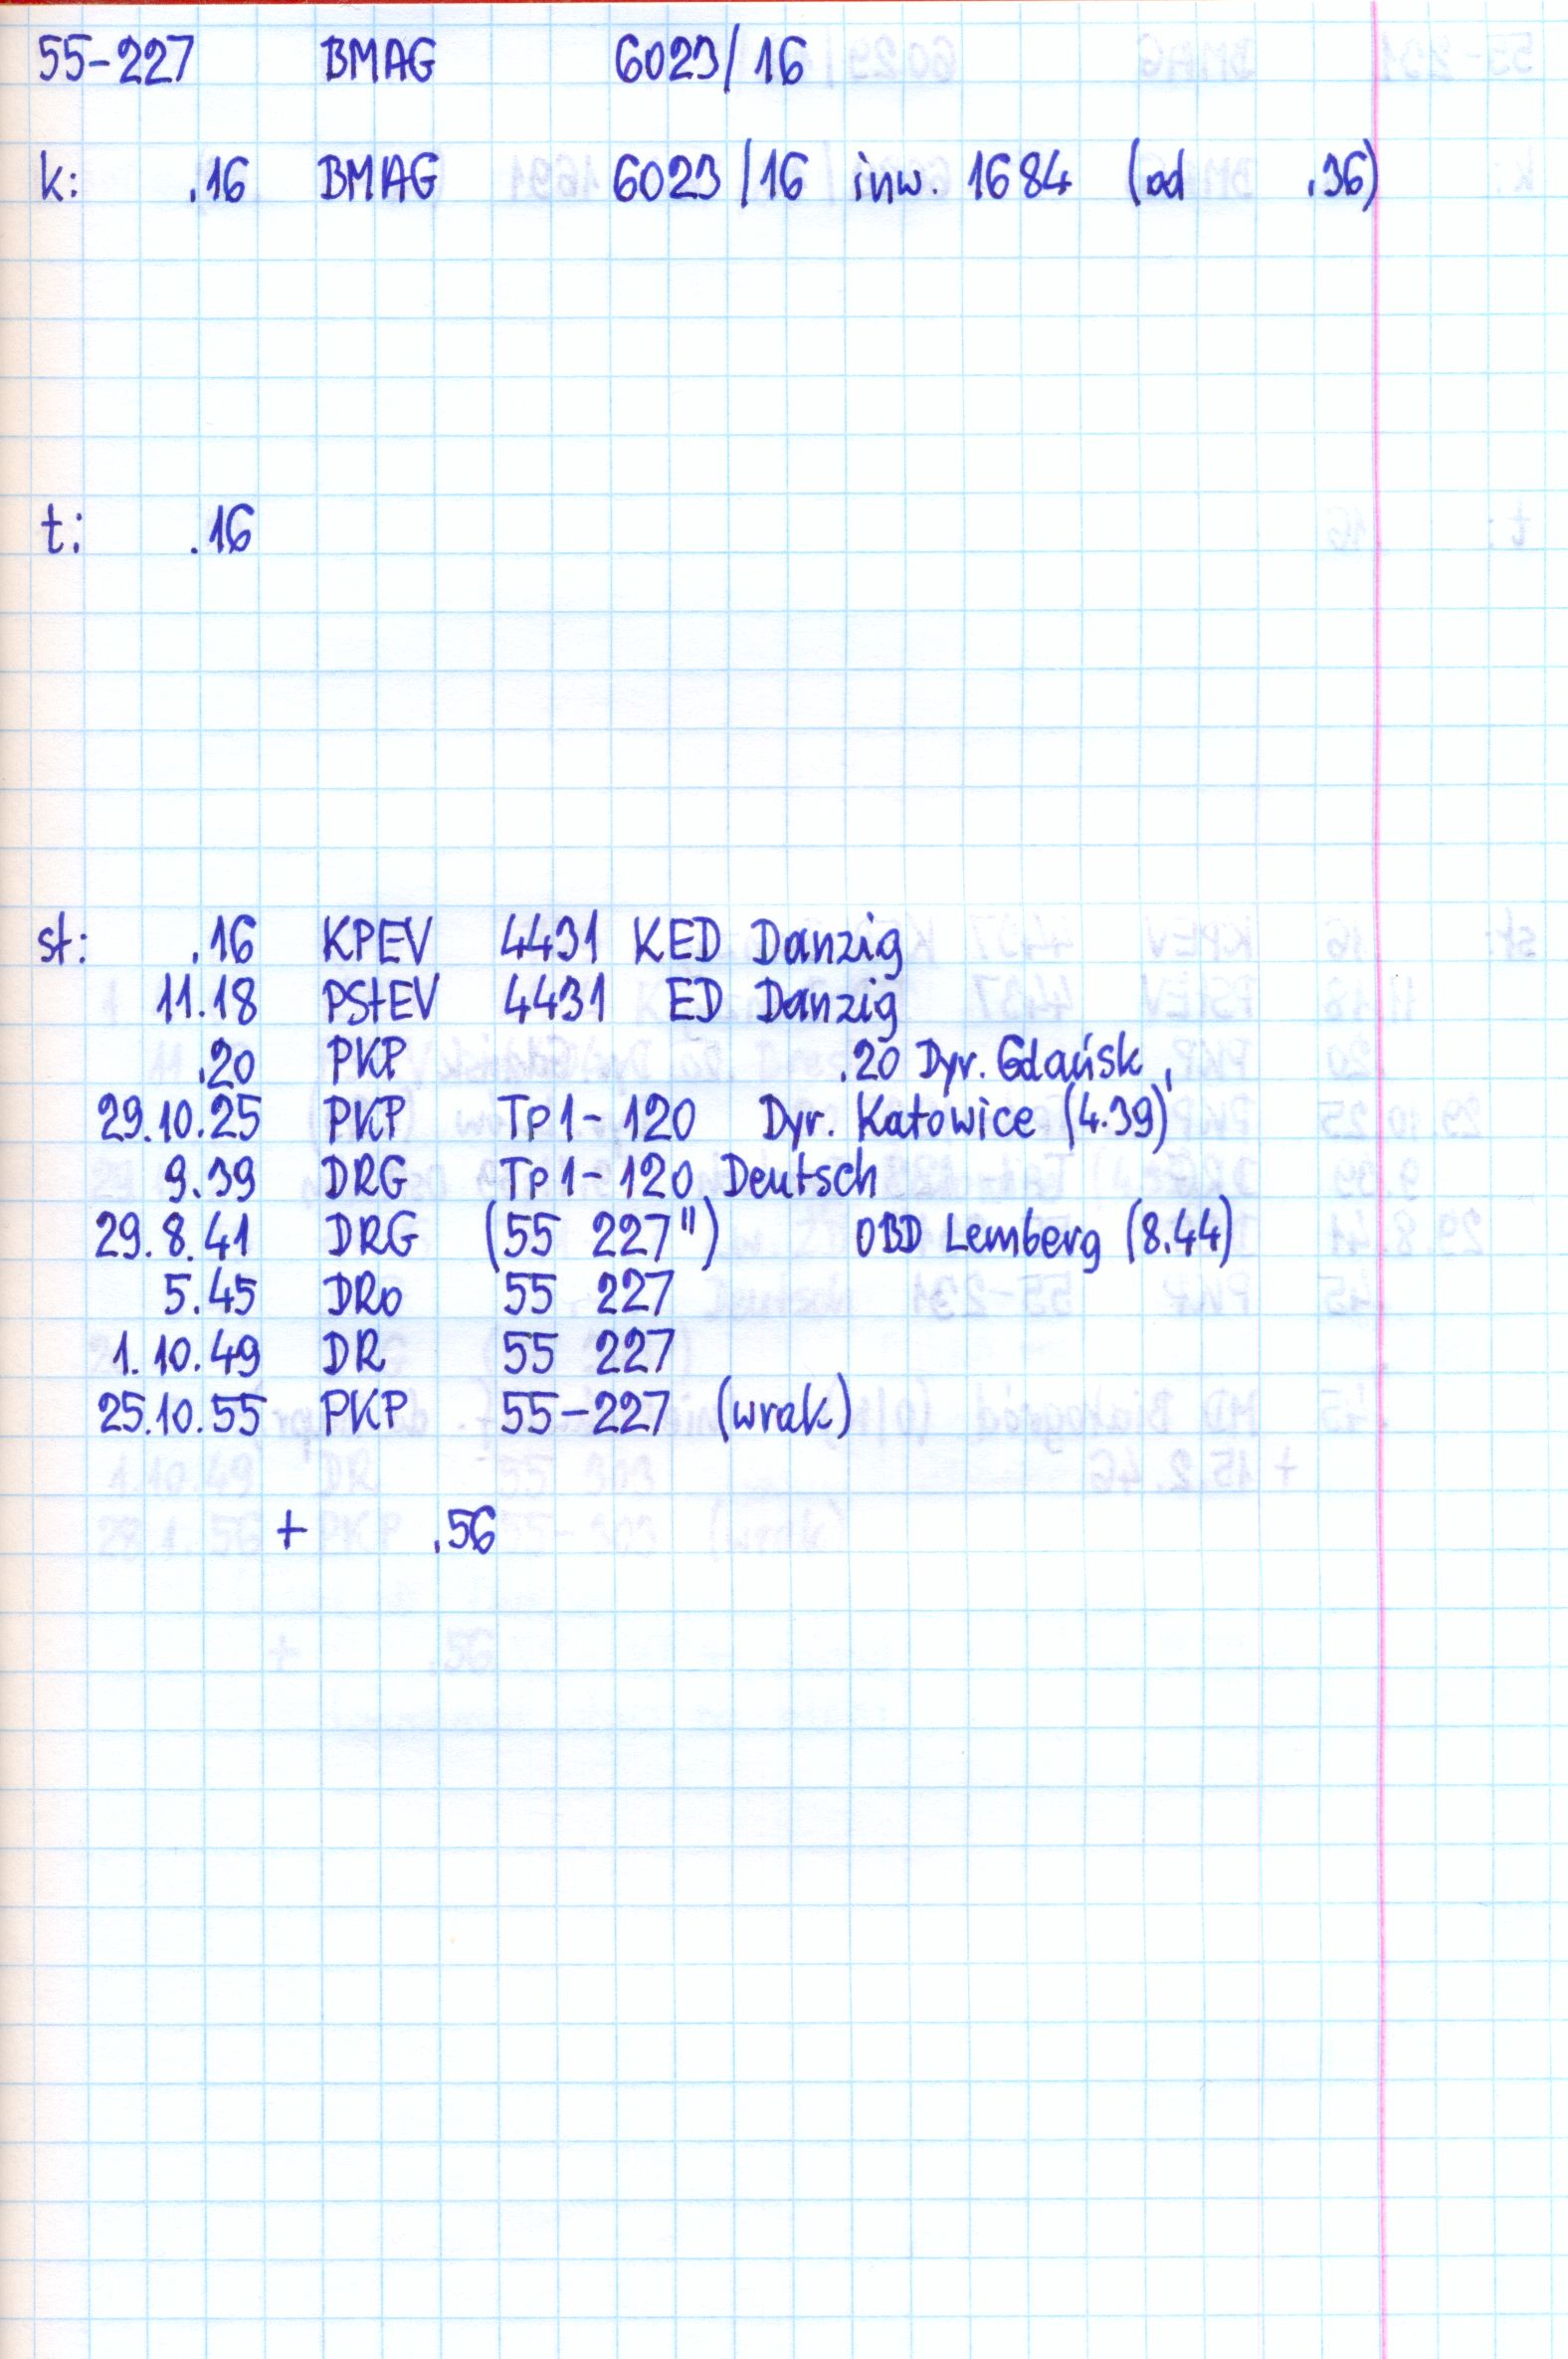 55-227 BMAG 6023/16
k: .16 BMAG 6023/16 inw. 1684 (od .36)
t: .16
st: .16 KPEV 4431 KED Danzig
11.18 PStEV 4431 ED Danzig
.20 PKP .20 Dyr. Gdańsk,
29.10.25 PKP Tp1-120 Dyr. Katowice (4.39)
9.39 DRG Tp1-120 Deutsch
29.8.41 DRG (55 227") OBD Lemberg (8.44)
5.45 DRo 55 227
1.10.49 DR 55 227
25.10.55 PKP 55-227 (wrak)
+ .56